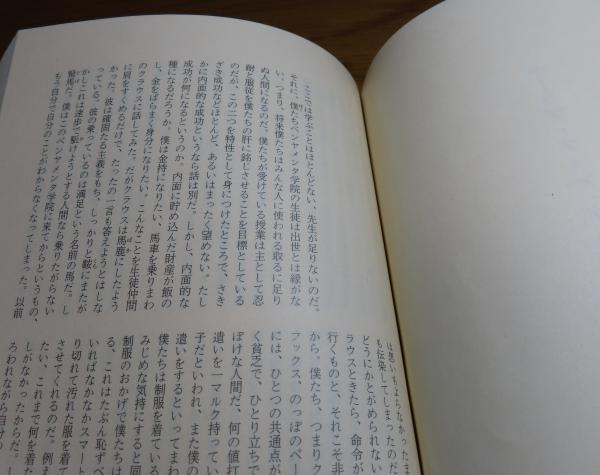 ここでは学ぶことはほとんどない、先生が足りないのだ。
それに、僕たちベンヤメンタ学院の生徒は出世とは縁がな
い、つまり、将来僕たちはみんな人に使われる取るに足り
ぬ人間になるのだ。僕たちが受けている授業は主として忍
耐と服従を僕たちの肝に銘じさせることを目標としている
のだが、この二つを特性として身につけたところで、さき
ざき成功などほとんど、あるいはまったく望めない。たし
かに内面的な成功というなら話は別だ。しかし、内面的な
成功が何になるというのか。内面に貯め込んだ財産が飯の
種になるだろうか。僕は金持になりたい、馬車を乗りまわ
し、金をばらまく身分になりたい。こんなことを生徒仲間
のクラウスに話してみた。だがクラウスは馬鹿にしたよう
に肩をすくめるだけで、たったの一言も答えようとはしな
かった。彼は確固たる主義をもち、しっかりと鞍にまたが
っている。彼の乗っているのは満足という名前の馬だ。し
かしこれは速歩で駆けようとする人間なら乗りたがらない
駑馬だ。僕はこのベンヤメンタ学院に来てからというもの、
もう自分で自分のことがわからなくなってしまった。以前
は思いもよらなかったま
も伝染してしまったのだ
どうにかとがめられない
ラウスときたら、命令が
行くものと、それこそ非
から。僕たち、つまりク
ラックス、のっぽのペー
には、ひとつの共通点が
く貧乏で、ひとり立ちで
ぽけな人間だ、何の値打
遣いを一マルク持ってい
子だといわれ、また僕の
遣いをするといってまわ
僕たちは制服を着ている
みじめな気持にすると同
制服のおかげで僕たちは
る、これはたぶん恥ずべ
いればなかなかスマート
り切れて汚れた服を着て
させてくれるのだ。例え
たい、これまで何を着た
しがなかったからだ。し
ろわれながら自分